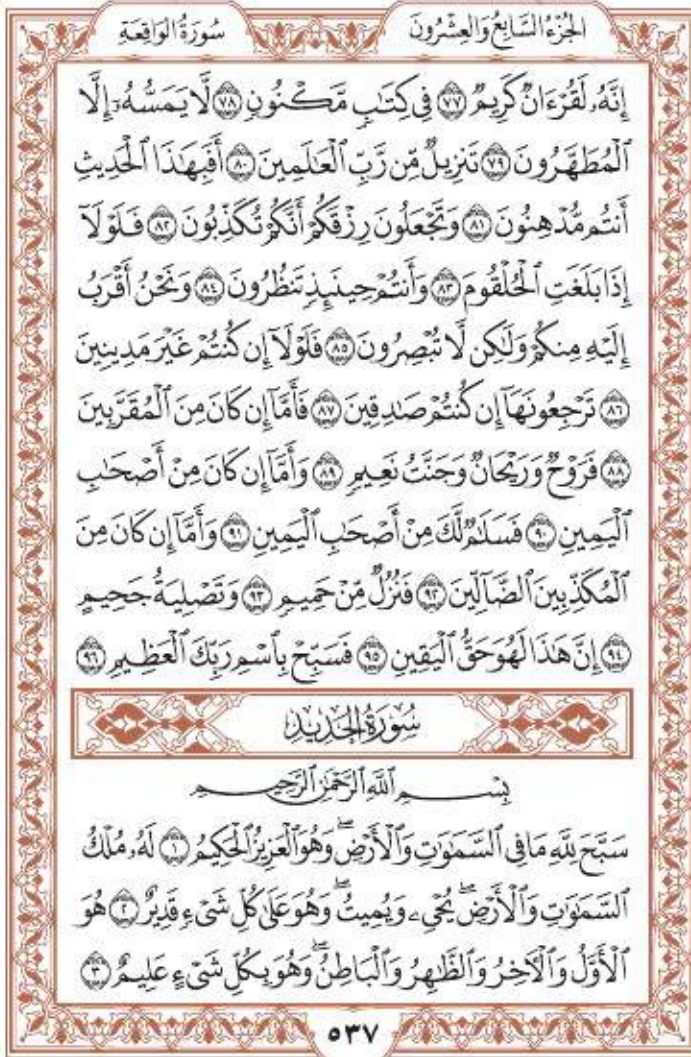 الجُزْءُ السَّابِعُ وَالعِشْرُونَ
سُورَةُ الوَاقِعَةِ
إِنَّهُۥ لَقُرْءَانٌ كَرِيمٌ ۝٧٧ فِى كِتَٰبٍ مَّكْنُونٍ ۝٧٨ لَّا يَمَسُّهُۥٓ إِلَّا
ٱلْمُطَهَّرُونَ ۝٧٩ تَنزِيلٌ مِّن رَّبِّ ٱلْعَٰلَمِينَ ۝٨٠ أَفَبِهَٰذَا ٱلْحَدِيثِ
أَنتُم مُّدْهِنُونَ ۝٨١ وَتَجْعَلُونَ رِزْقَكُمْ أَنَّكُمْ تُكَذِّبُونَ ۝٨٢ فَلَوْلَآ
إِذَا بَلَغَتِ ٱلْحُلْقُومَ ۝٨٣ وَأَنتُمْ حِينَئِذٍ تَنظُرُونَ ۝٨٤ وَنَحْنُ أَقْرَبُ
إِلَيْهِ مِنكُمْ وَلَٰكِن لَّا تُبْصِرُونَ ۝٨٥ فَلَوْلَآ إِن كُنتُمْ غَيْرَ مَدِينِينَ
۝٨٦ تَرْجِعُونَهَآ إِن كُنتُمْ صَٰدِقِينَ ۝٨٧ فَأَمَّآ إِن كَانَ مِنَ ٱلْمُقَرَّبِينَ
۝٨٨ فَرَوْحٌ وَرَيْحَانٌ وَجَنَّتُ نَعِيمٍ ۝٨٩ وَأَمَّآ إِن كَانَ مِنْ أَصْحَٰبِ
ٱلْيَمِينِ ۝٩٠ فَسَلَٰمٌ لَّكَ مِنْ أَصْحَٰبِ ٱلْيَمِينِ ۝٩١ وَأَمَّآ إِن كَانَ مِنَ
ٱلْمُكَذِّبِينَ ٱلضَّآلِّينَ ۝٩٢ فَنُزُلٌ مِّنْ حَمِيمٍ ۝٩٣ وَتَصْلِيَةُ جَحِيمٍ
۝٩٤ إِنَّ هَٰذَا لَهُوَ حَقُّ ٱلْيَقِينِ ۝٩٥ فَسَبِّحْ بِٱسْمِ رَبِّكَ ٱلْعَظِيمِ ۝٩٦
سُورَةُ الحَدِيدِ
بِسْمِ ٱللَّهِ ٱلرَّحْمَٰنِ ٱلرَّحِيمِ
سَبَّحَ لِلَّهِ مَا فِى ٱلسَّمَٰوَٰتِ وَٱلْأَرْضِ ۖ وَهُوَ ٱلْعَزِيزُ ٱلْحَكِيمُ ۝١ لَهُۥ مُلْكُ
ٱلسَّمَٰوَٰتِ وَٱلْأَرْضِ ۖ يُحْىِۦ وَيُمِيتُ ۖ وَهُوَ عَلَىٰ كُلِّ شَىْءٍ قَدِيرٌ ۝٢ هُوَ
ٱلْأَوَّلُ وَٱلْءَاخِرُ وَٱلظَّٰهِرُ وَٱلْبَاطِنُ ۖ وَهُوَ بِكُلِّ شَىْءٍ عَلِيمٌ ۝٣
٥٣٧